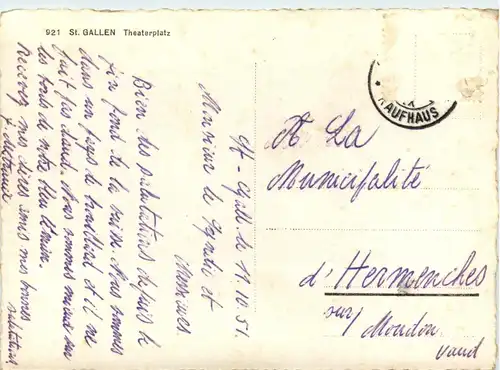 921 St. GALLEN Theaterplatz
AUFHAUS
St-Gall. le 11.10.51.
Monsieur le Syndic et
Messieurs
Bien des salutations depuis le
fin fond de la Suisse. Nous sommes
dans un pays de brouillard et il ne
fait pas chaud. Nous sommes mieux sur
les bords de notre bleu Léman.
Recevez mes chères amis mes bonnes
salutations
A La
Municipalité
d'Hermenches
sur/
Moudon
Vaud